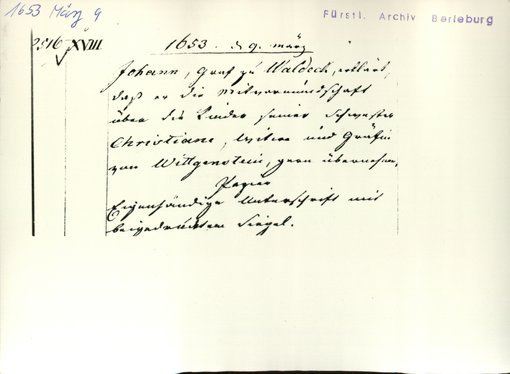 1653 März 9
Fürstl. Archiv Berleburg
2516 XVIII
1653. d 9. märz
Johann, Graf zu Waldeck, erklärt,
daß er die Mitvormundschaft
über die Kinder seiner Schwester
Christiane, Witwe und Gräfin
von Wittgenstein, gern übernehme.
Papier
Eigenhändige Unterschrift mit
beigedrücktem Siegel.